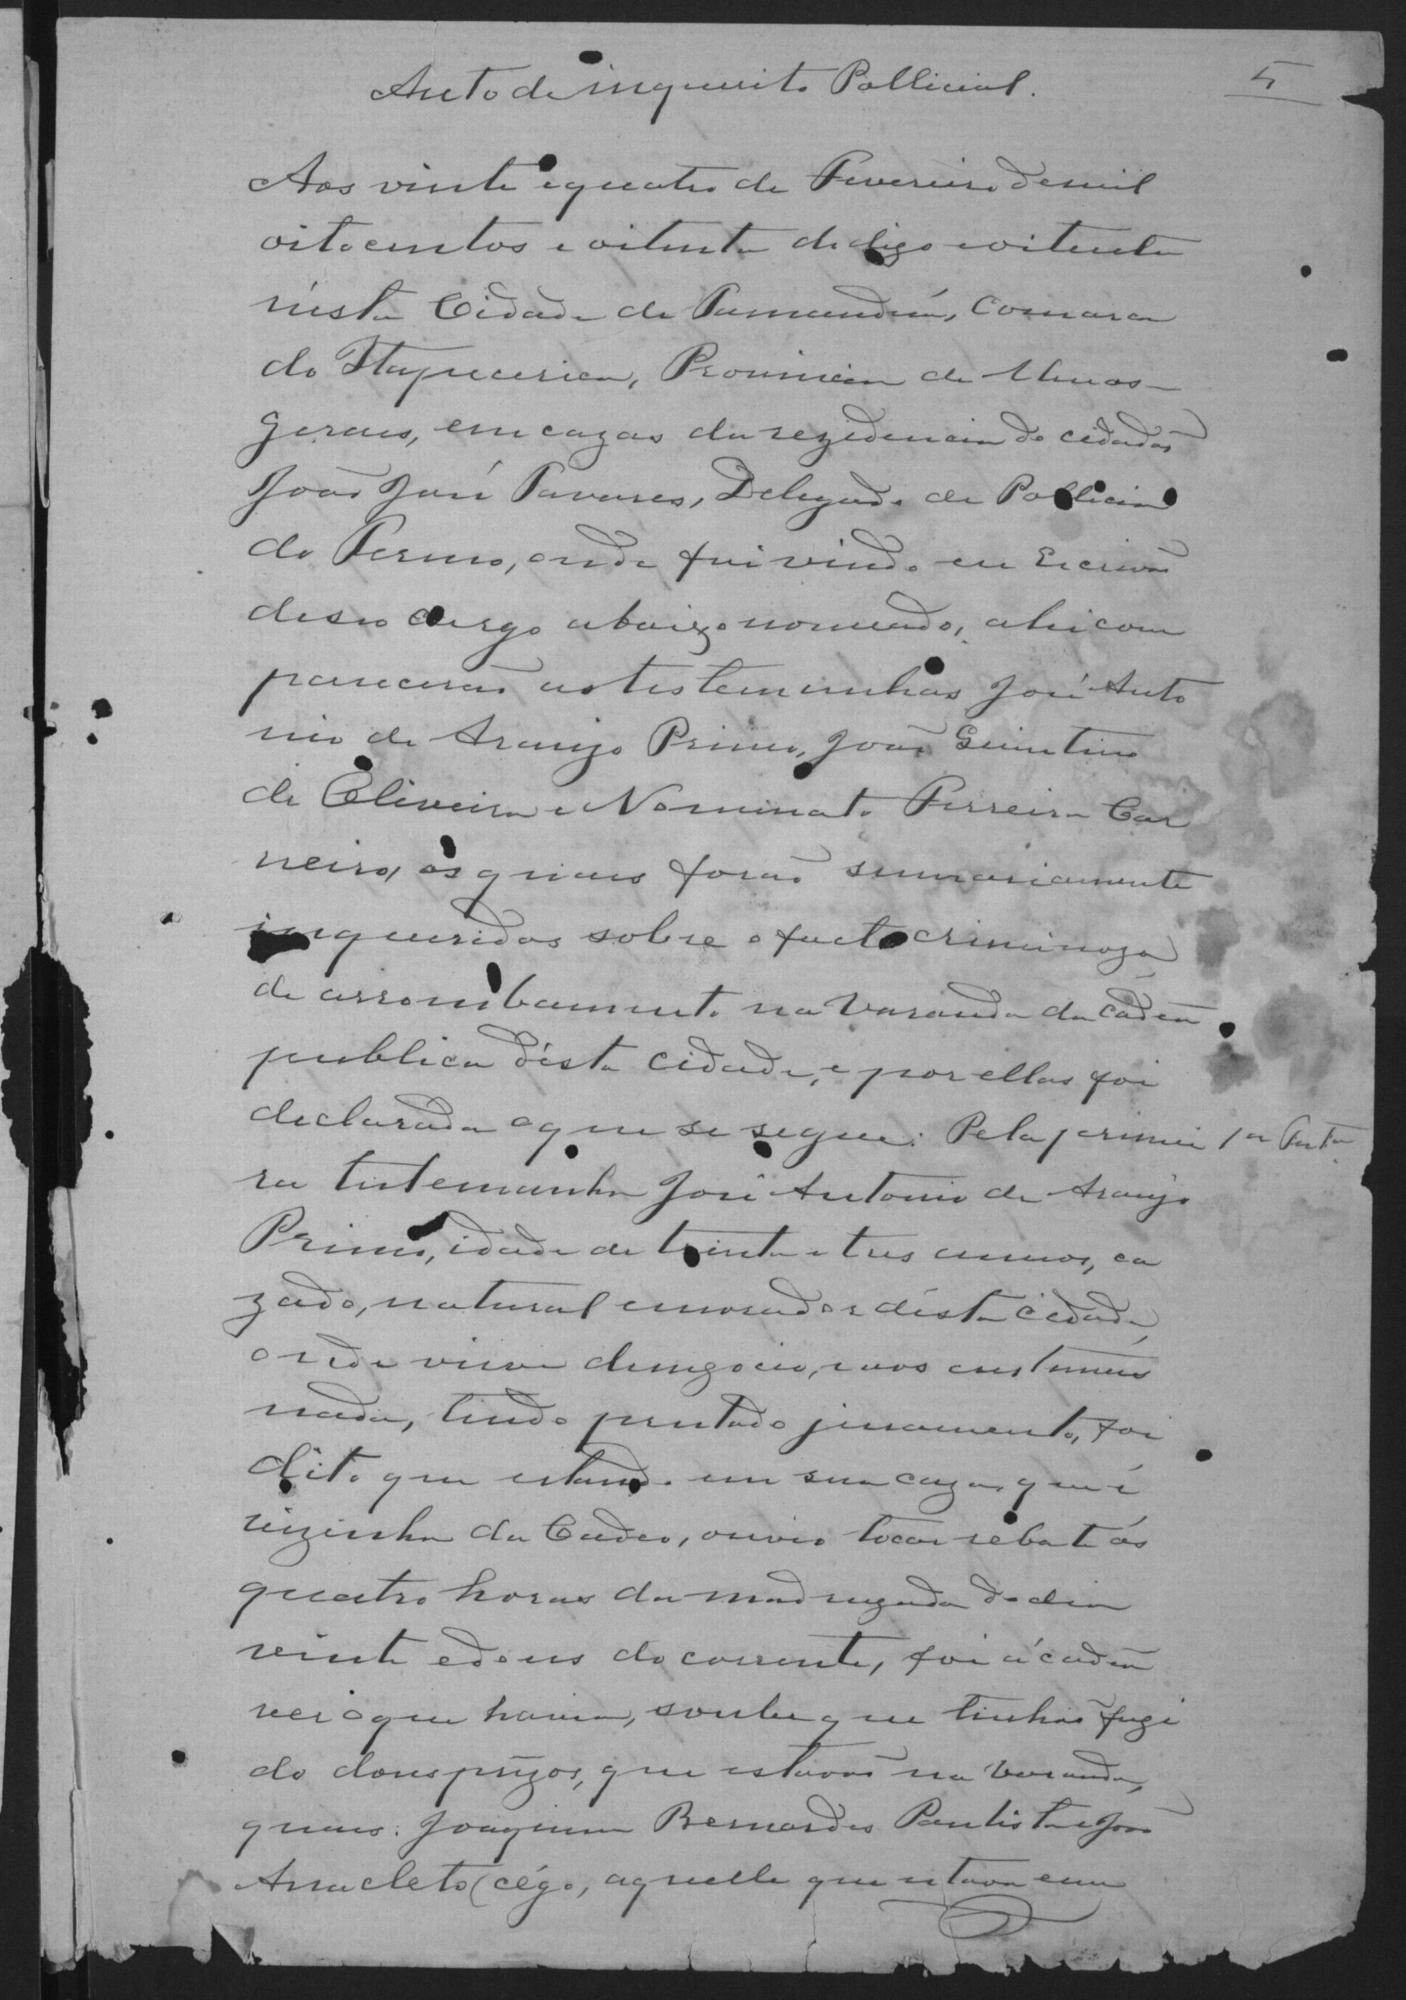 Auto de inquerito Pollicial.
5
Aos vinte equatro de Fevereiro demil
oitocentos e oitenta de digo eoitenta
nésta Cidade de Tamanduá, Comarca
do Itapecerica, Provincia de Minas-
geraes, em cazas da rezidencia do cidadaõ
Joaõ José Tavares, Delegado de Pollicia
do Termo, onde fui vindo eu Escrivaõ
deseo cargo abaixo nomeado, ahi com
pareceraõ astestemunhas José Anto
nio de Araujo Primo, Joaõ Quintino
de Oliveira e Nominato Ferreira Car
neiro, os quaes foraõ sumariamente
inqueridos sobre o facto criminozo
de arrombamento na Varanda da cadêa
publica désta cidade, e por ellas foi
declarado oque se segue: Pela primei 1a Testa
ra testemunha José Antonio de Araujo
Primo, idade de trinta e tres annos, ca
zado, natural emorador désta cidade,
onde vive denegocio, eaos custumes
nada, tendo prestado juramento, foi
dito que estando em sua caza, que é
vizinha da Cadea, ouvio tocar rebate ás
quatro horas da madrugada do dia
vinte edous do corrente, foi á cadêa
ver oque havia, soube que tinhaõ fugi
do dous prezos, que estavaõ na Varanda,
quaes: Joaquim Bernardes Pautista e Joaõ
Anacleto (cégo, aquelle que estava em